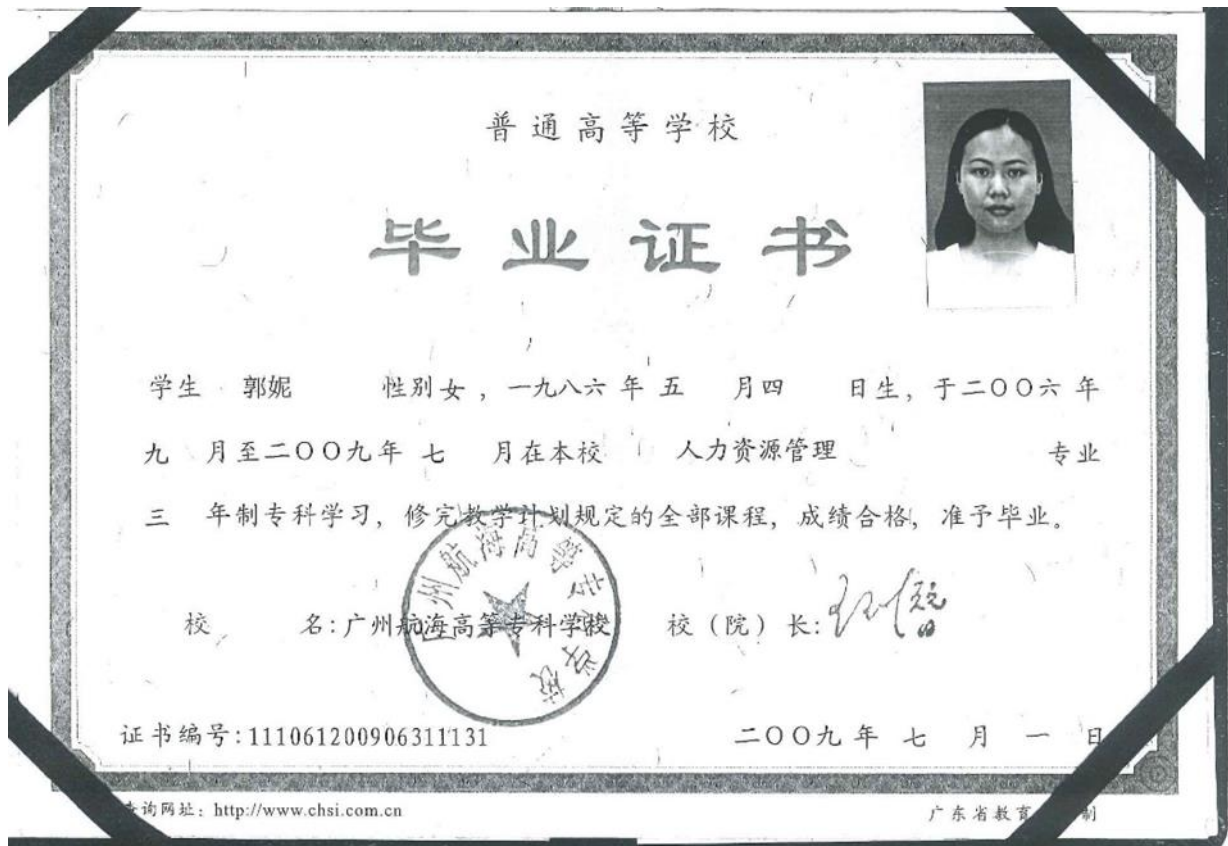 普通高等学校
毕业证书
学生 郭妮 性别女，一九八六年五月四日生，于二〇〇六年
九月至二〇〇九年七月在本校人力资源管理专业
三年制专科学习，修完教学计划规定的全部课程，成绩合格，准予毕业。
校名：广州航海高等专科学校 校（院）长：
广州航海高等专科学校
证书编号：111061200906311131 二〇〇九年七月一日
询网址：http://www.chsi.com.cn 广东省教育 制